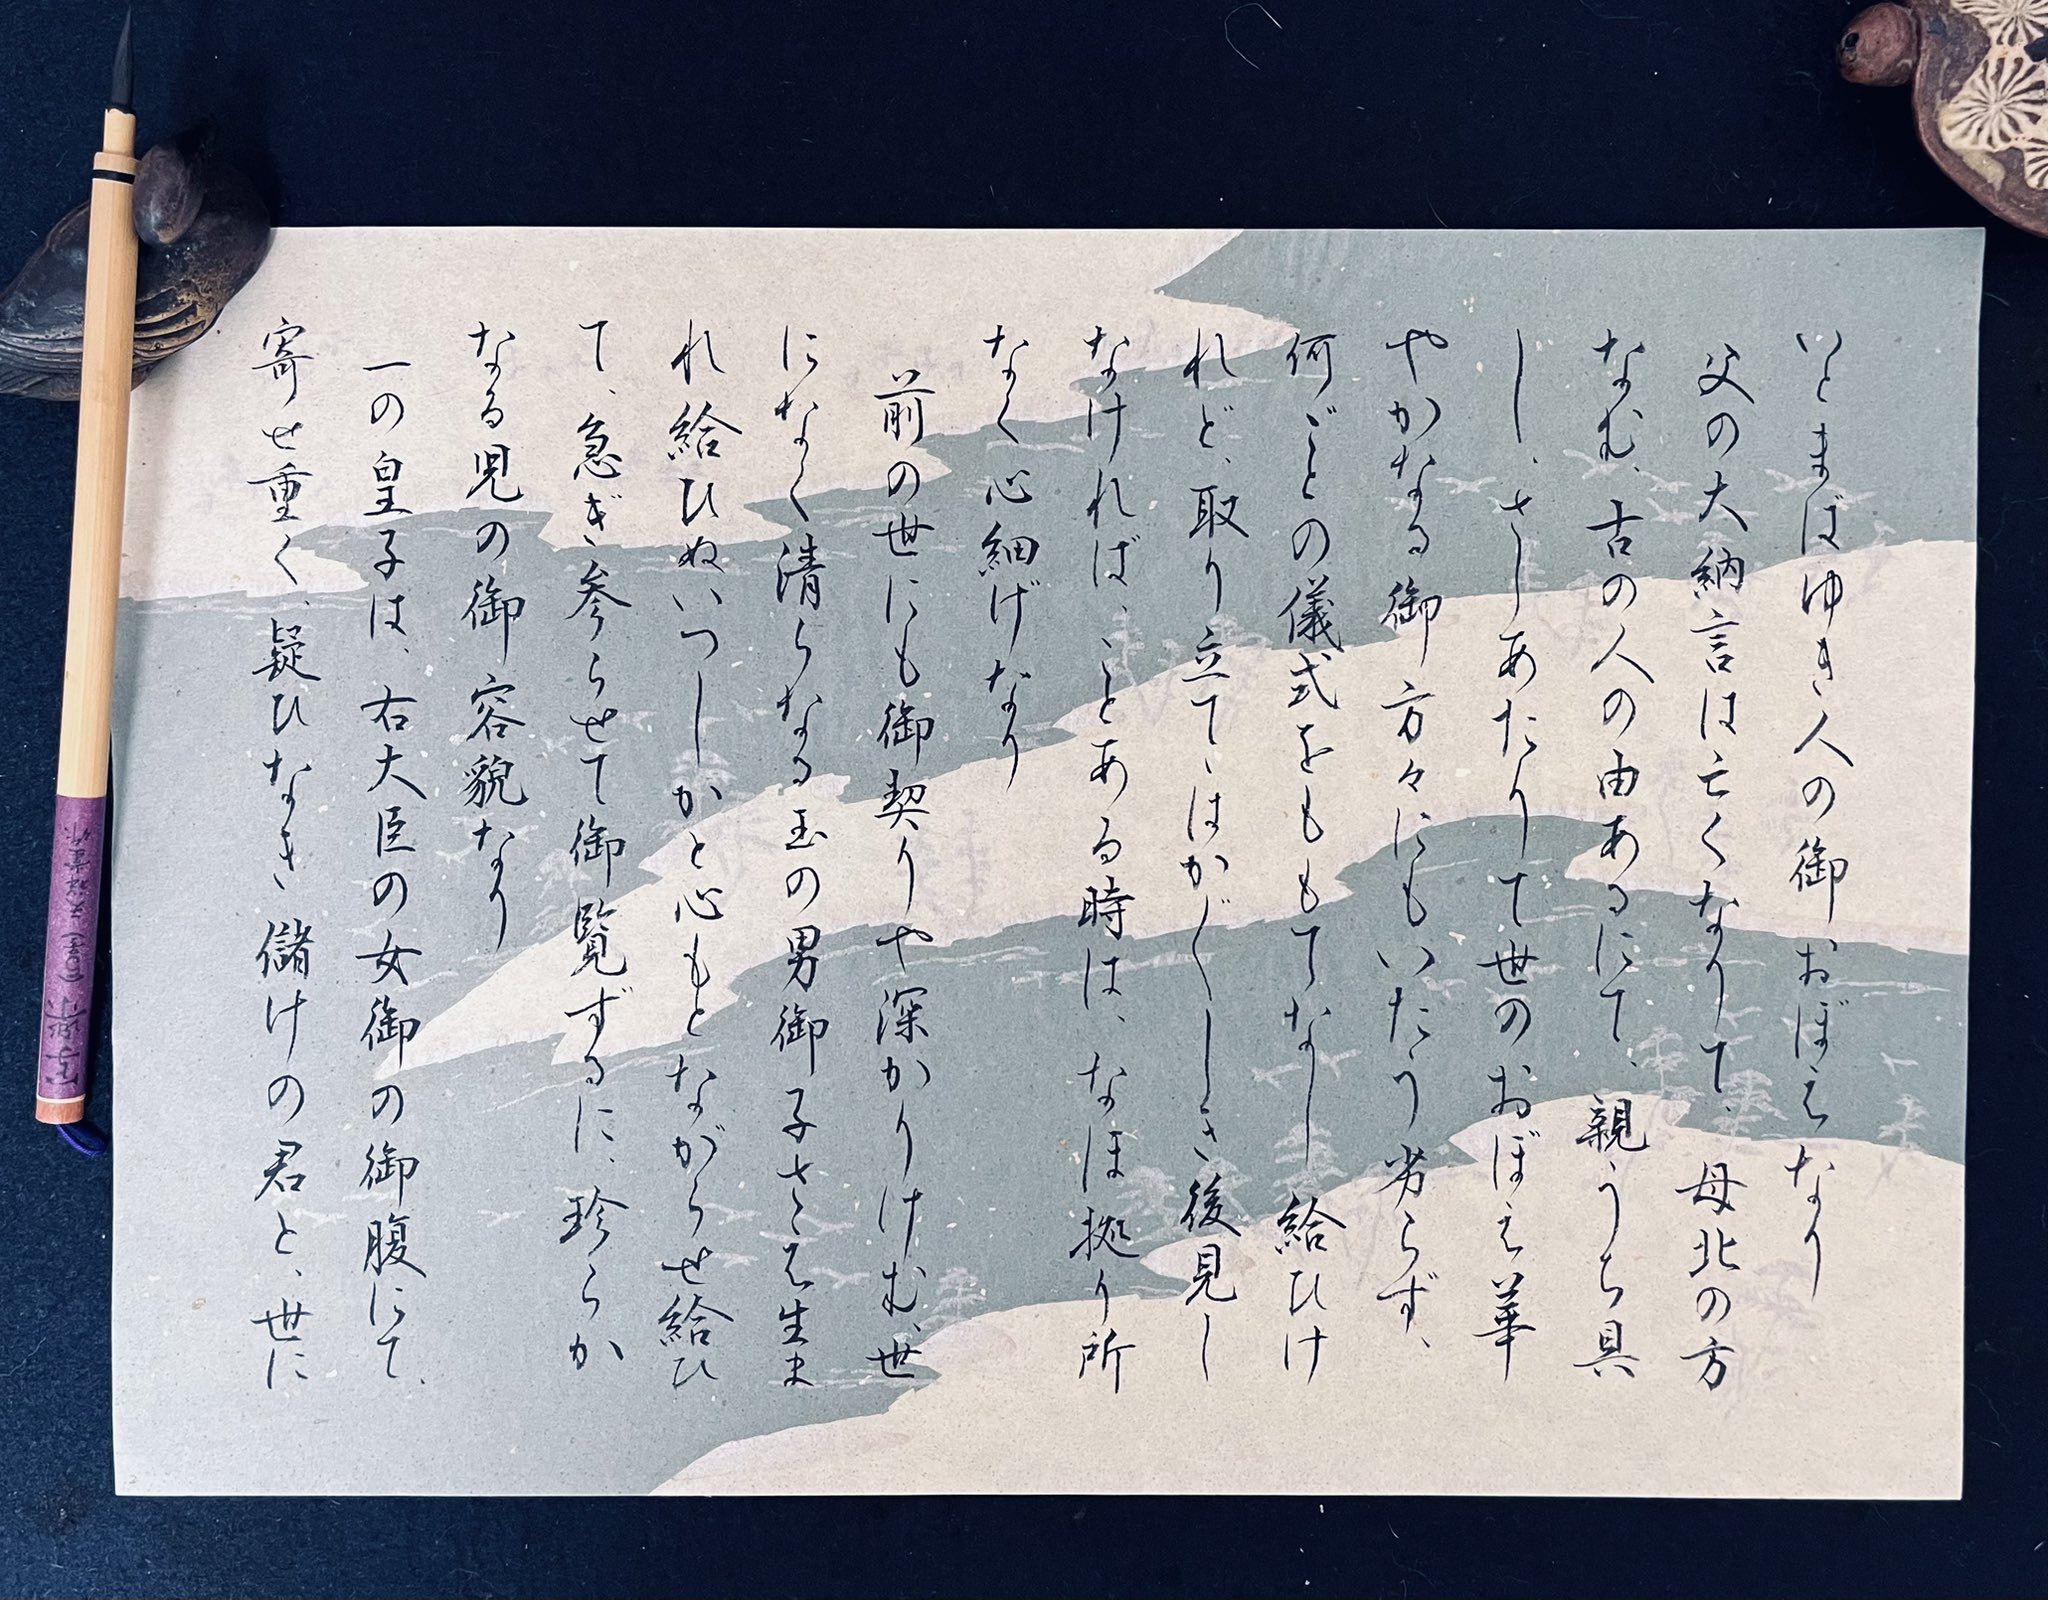 いとまばゆき人の御おぼえなり
父の大納言は亡くなりて、母北の方
なむ、古の人の由あるにて、親うち具
し、さしあたりて世のおぼえ華
やかなる御方々にもいたう劣らず、
何ごとの儀式をももてなし給ひけ
れど、取り立てゝはかばかしき後見し
なければ、ことある時は、なほ拠り所
なく心細げなり
前の世にも御契りや深かりけむ、世
になく清らなる玉の男御子さへ生ま
れ給ひぬいつしかと心もとながらせ給ひ
て、急ぎ参らせて御覧ずるに、珍らか
なる児の御容貌なり
一の皇子は、右大臣の女御の御腹にて、
寄せ重く、疑ひなき儲けの君と、世に